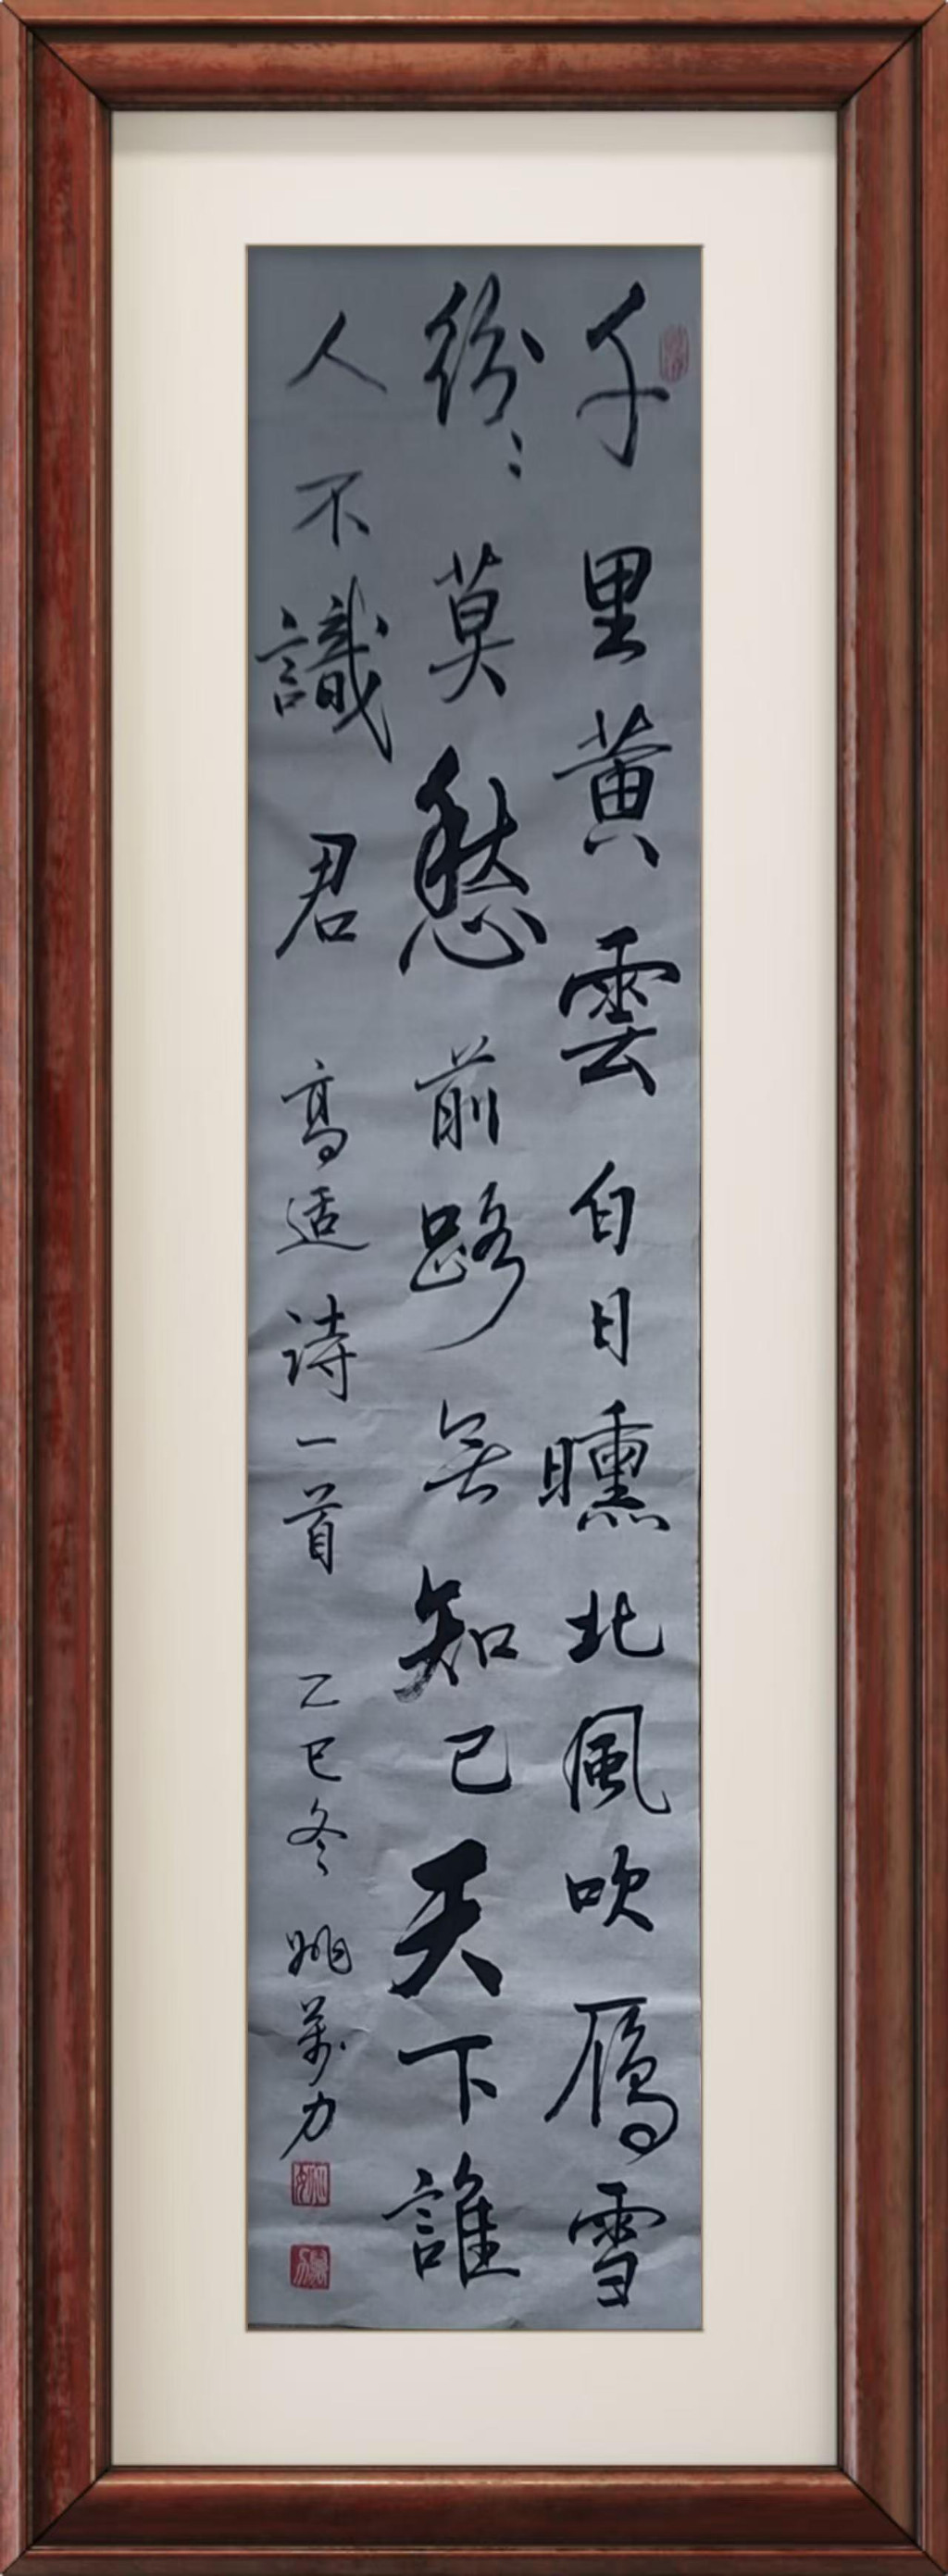 千里黄雲白日曛北風吹雁雪
紛〻莫愁前路无知己天下誰
人不識君 高适诗一首 乙巳冬 姚万力